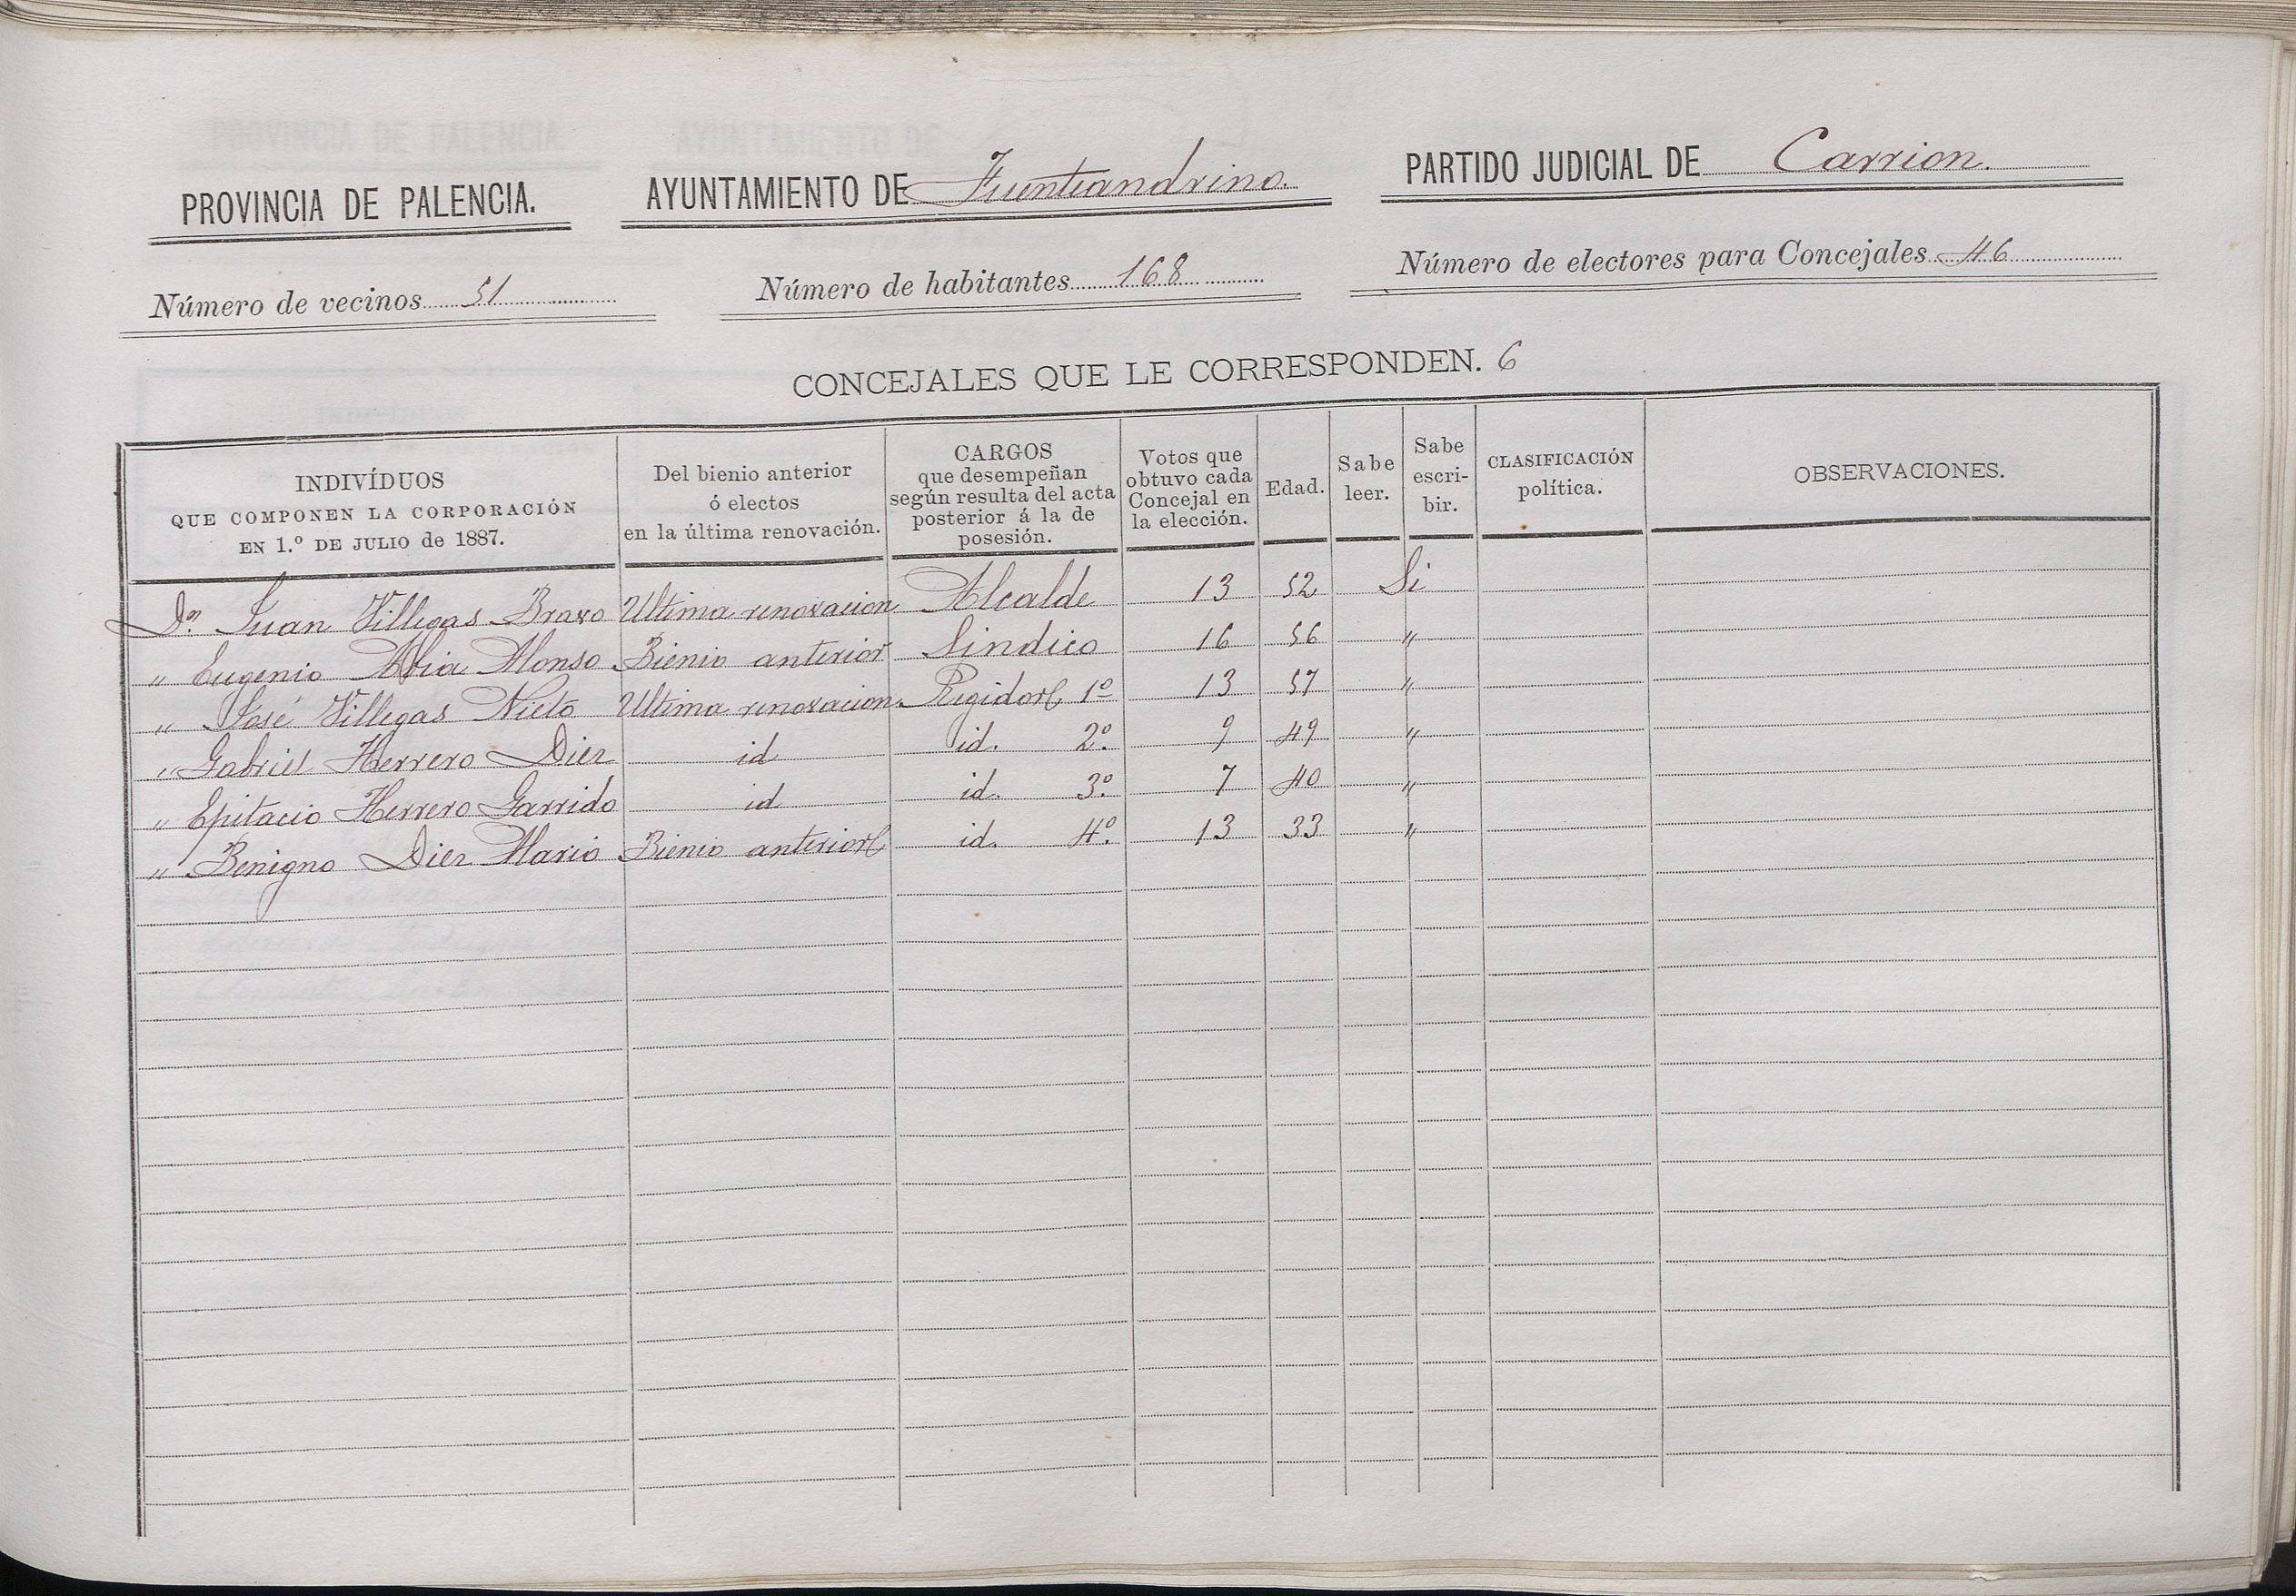 PROVINCIA DE PALENCIA. AYUNTAMIENTO DE Fuenteandrino. PARTIDO JUDICIAL DE Carrion.
Número de vecinos 51 Número de habitantes 168 Número de electores para Concejales 46
CONCEJALES QUE LE CORRESPONDEN. 6
INDIVÍDUOS
QUE COMPONEN LA CORPORACIÓN
EN 1.º DE JULIO de 1887.
Del bienio anterior
ó electos
en la última renovación.
CARGOS
que desempeñan
según resulta del acta
posterior á la de
posesión.
Votos que
obtuvo cada
Concejal en
la elección.
Edad.
Sabe
leer.
Sabe
escri-
bir.
CLASIFICACIÓN
política.
OBSERVACIONES.
Dn. Juan Villegas Bravo Ultima renovacion Alcalde 13 52 Si
" Eugenio Abia Alonso Bienio anterior Sindico 16 56 "
" José Villegas Nieto Ultima renovacion Regidor 1º 13 57 "
" Gabriel Herrero Diez id id. 2º. 9 49 "
" Epitacio Herrero Garrido id id. 3º. 7 40 "
" Benigno Diez Mario Bienio anterior id. 4º. 13 33 "